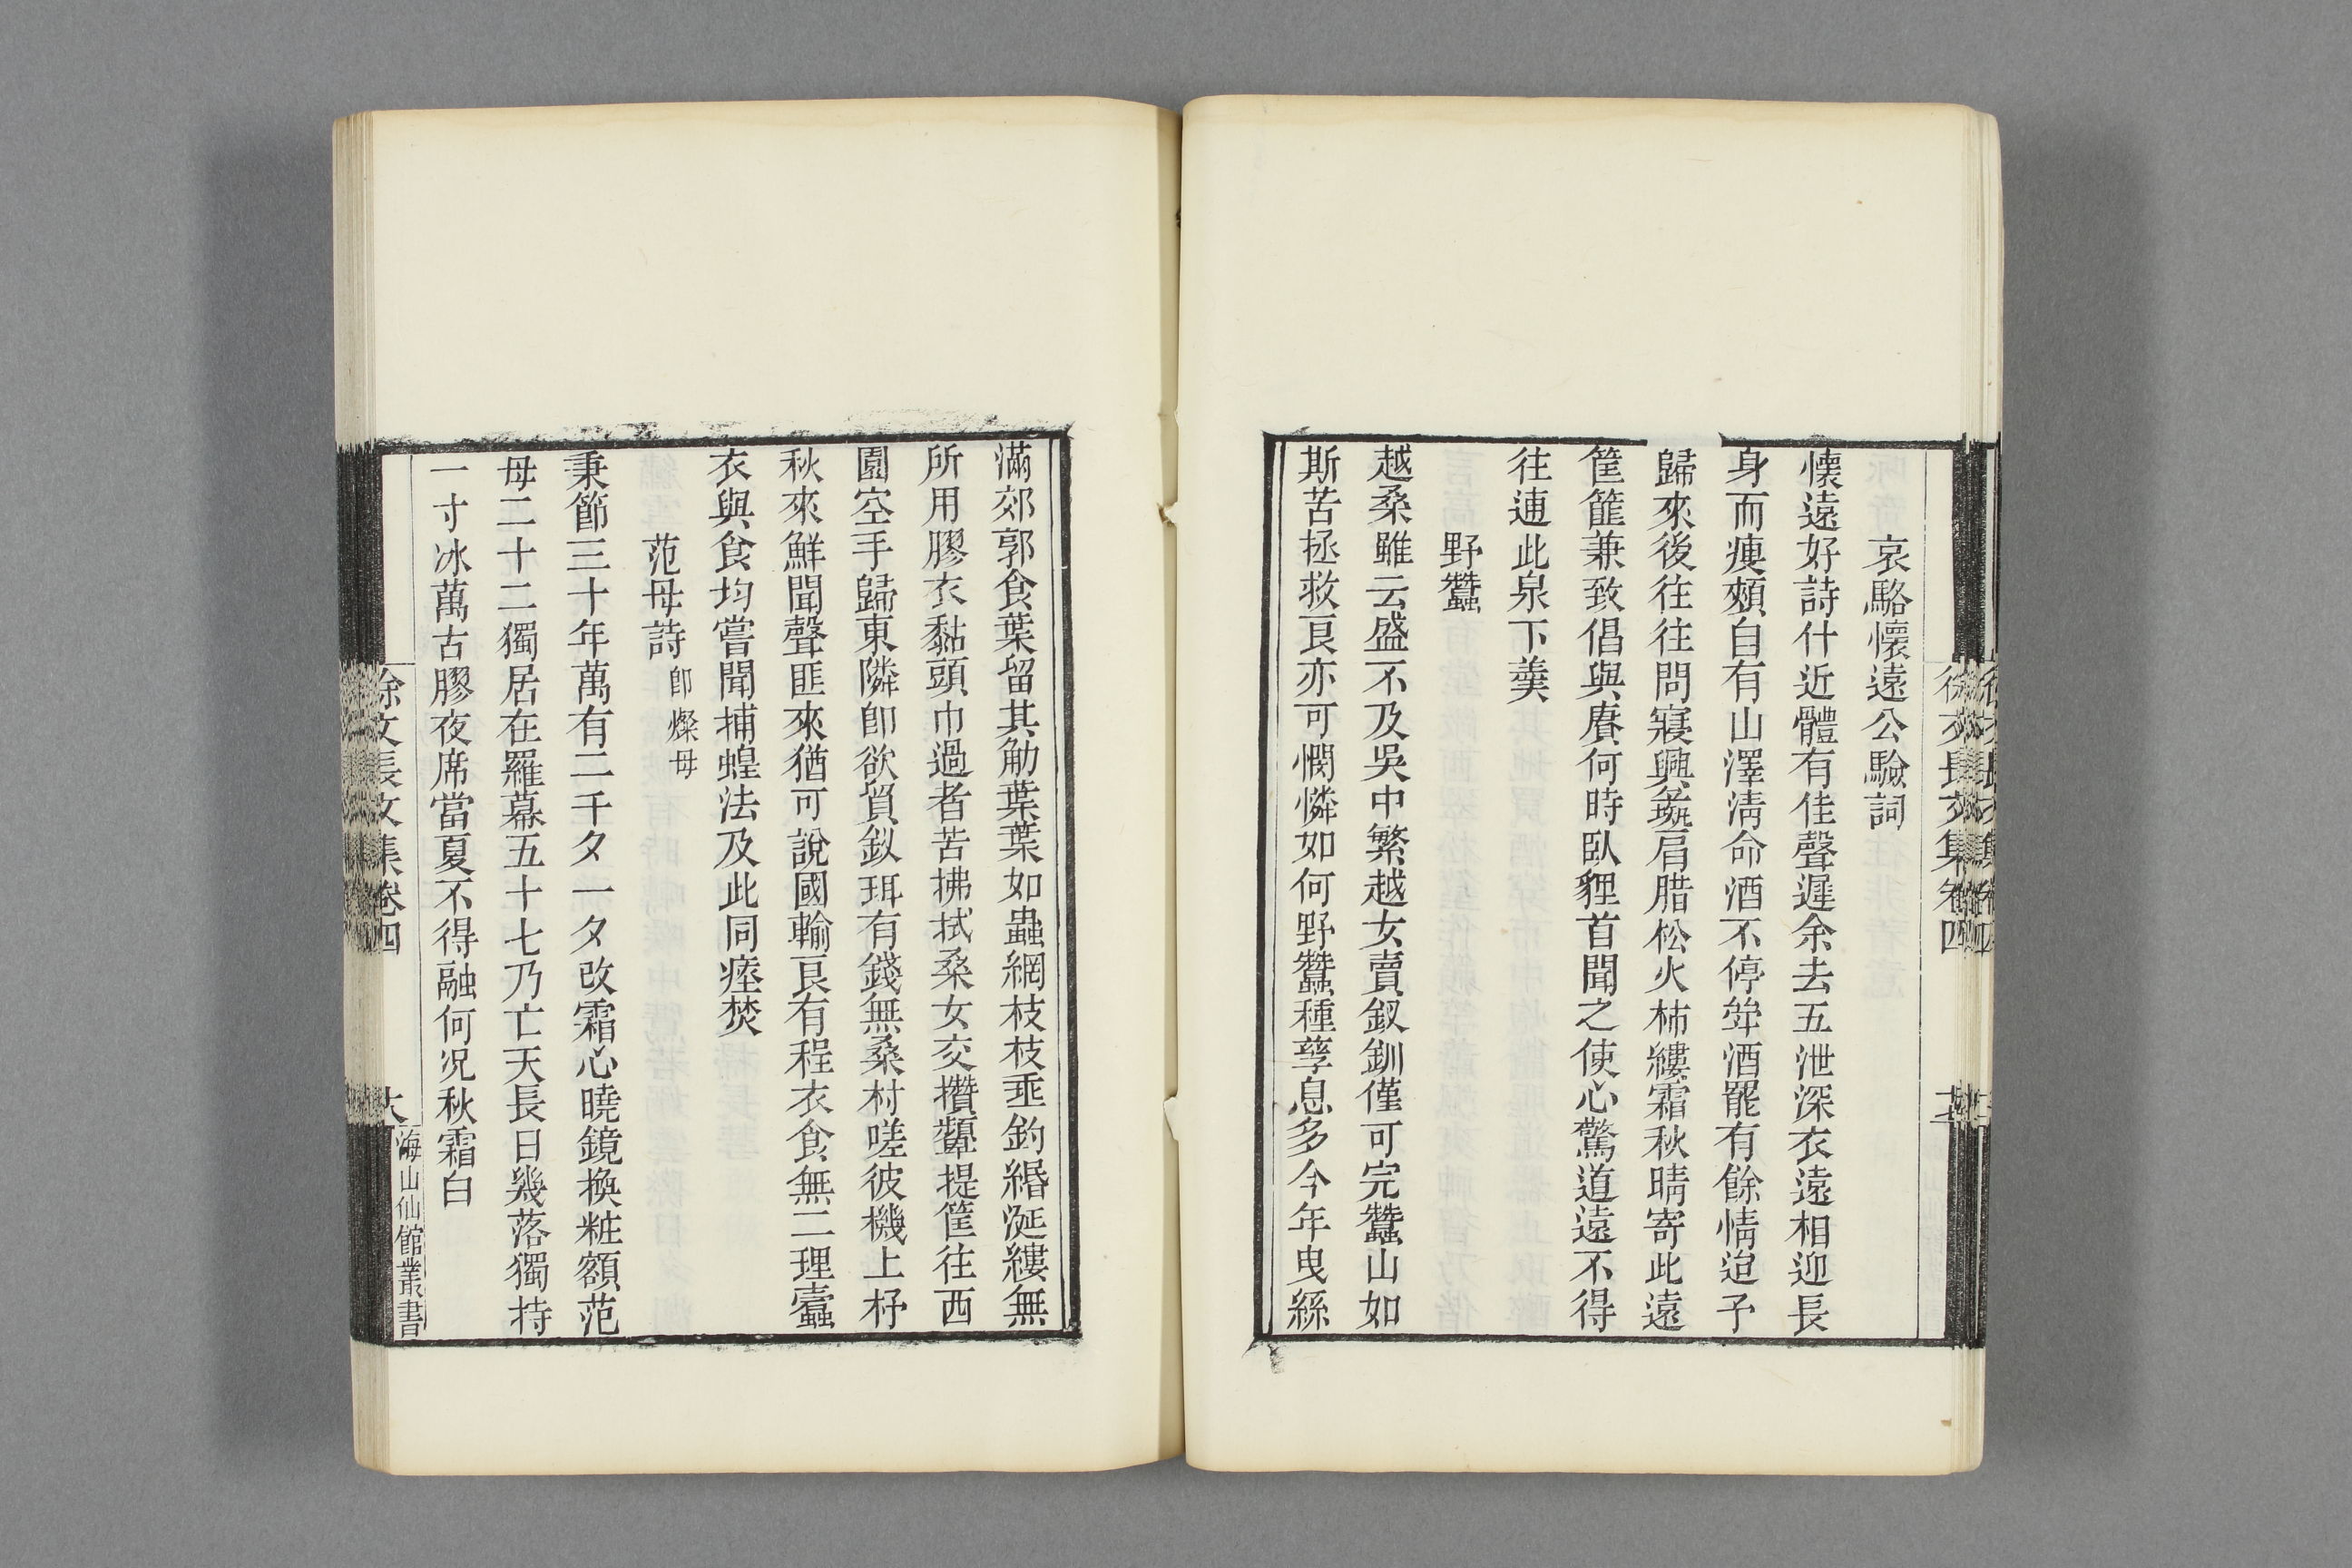 哀駱懷遠公驗詞
懷遠好詩什近體有佳聲遲余去五泄深衣遠相迎長
身而瘐頰自有山澤清命酒不停斝酒罷有餘情迨予
歸來後往往問寢興羸肩腊松火柿縷霜秋晴寄此遠
筐篚兼致倡與賡何時臥貍首聞之使心驚道遠不得
往逋此泉下羹
野蠶
越桑雖云盛不及吳中繁越女賣釵釧僅可完蠶山如
斯苦拯救艮亦可憫憐如何野蠶種孽息多今年曳絲
滿郊郭食葉留其觔葉葉如蟲網枝枝垂釣緡涎縷無
所用膠衣黏頭巾過者苦拂拭桑女交攢顰提筐往西
園空手歸東隣卽欲貿釵珥有錢無桑村嗟彼機上杼
秋來鮮聞聲匪來猶可說國輸艮有程衣食無二理蠹
衣與食均嘗聞捕蝗法及此同瘞焚
范母詩 卽燦母
秉節三十年萬有二千夕一夕改霜心曉鏡換粧額范
母二十二獨居在羅幕五十七乃亡天長日幾落獨持
一寸冰萬古膠夜席當夏不得融何况秋霜白
徐文長文集卷四
海山仙館叢書